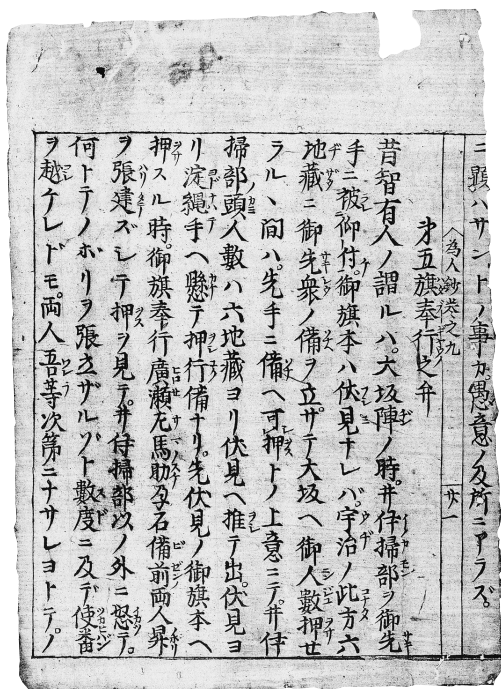 ニ顕ハサントノ事カ愚意ノ及所ニアラズ。
為人鈔巻之九
廿一
㐧五旗奉行之弁
昔智有人ノ謂ルハ。大坂陣ノ時。井伊掃部ヲ御先
手ニ被仰付。御旗本ハ伏見ナレバ。宇治ノ此方六
地藏ニ御先衆ノ備ヲ立サテ大坂ヘ御人數押セ
ラルヽ間ハ。先手ニ備ヘ可押トノ上意ニテ。井伊
掃部頭人數ハ六地藏ヨリ伏見ヘ推テ出。伏見ヨ
リ淀縄手ヘ懸テ押行備ナリ。先伏見ノ御旗本ヘ
押スル時。御旗奉行廣瀬左馬助孕石備前両人昇
ヲ張建ズシテ押ヲ見テ。井伊掃部以ノ外ニ怒テ。
何トテノボリヲ張立ザルゾト數度ニ及デ使番
ヲ越ケレドモ。両人吾等次第ニナサレヨトテ。ノ